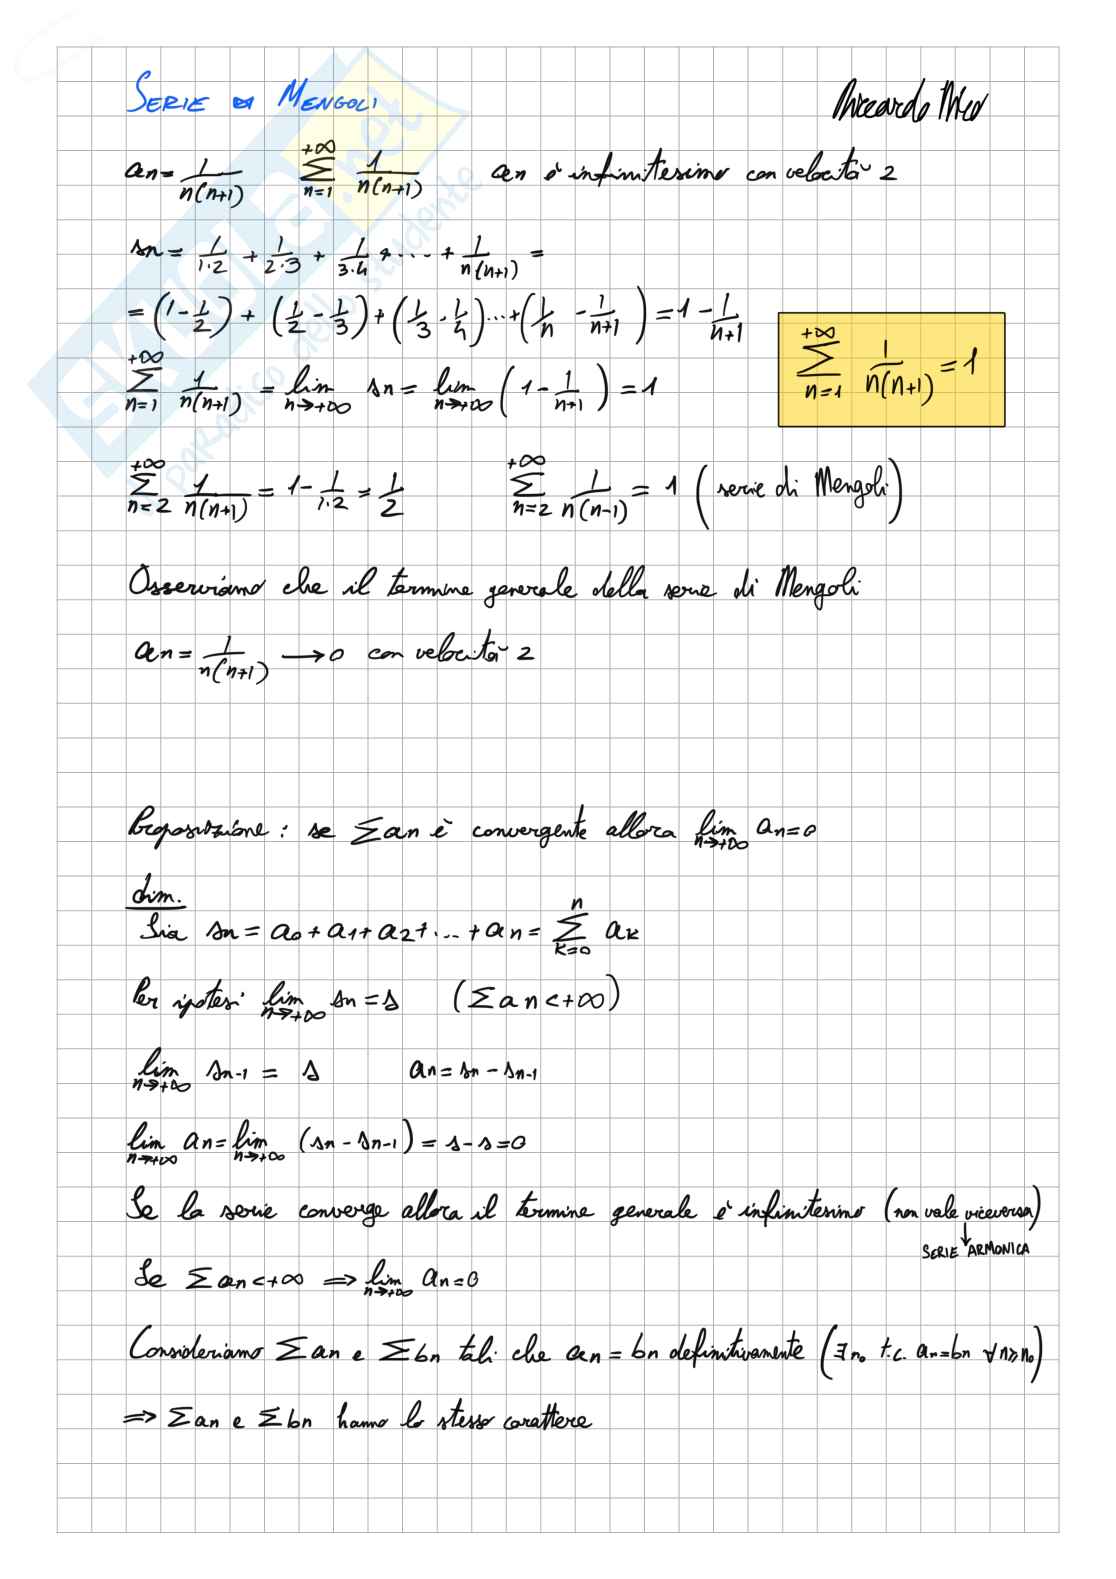 SERIE DI MENGOLI
Riccardo Mico
an = 1/n(n+1)   +∞ Σ n=1 1/n(n+1)   an è infinitesimo con velocità 2
sn = 1/1·2 + 1/2·3 + 1/3·4 + ... + 1/n(n+1) =
= (1 - 1/2) + (1/2 - 1/3) + (1/3 - 1/4) ... + (1/n - 1/n+1) = 1 - 1/n+1
+∞ Σ n=1 1/n(n+1) = lim n→+∞ sn = lim n→+∞ (1 - 1/n+1) = 1
+∞ Σ n=1 1/n(n+1) = 1
+∞ Σ n=2 1/n(n+1) = 1 - 1/1·2 = 1/2   +∞ Σ n=2 1/n(n-1) = 1 (serie di Mengoli)
Osserviamo che il termine generale della serie di Mengoli
an = 1/n(n+1) → 0 con velocità 2
Proposizione: se Σan è convergente allora lim n→+∞ an=0
dim.
Sia sn = a0 + a1 + a2 + ... + an = n Σ k=0 ak
Per ipotesi lim n→+∞ sn = s   (Σan < +∞)
lim n→+∞ sn-1 = s   an = sn - sn-1
lim n→+∞ an = lim n→+∞ (sn - sn-1) = s - s = 0
Se la serie converge allora il termine generale è infinitesimo (non vale viceversa)
↓
SERIE ARMONICA
Se Σan < +∞ ⟹ lim n→+∞ an = 0
Consideriamo Σan e Σbn tali che an = bn definitivamente (∃ n0 t.c. an = bn ∀ n ≥ n0)
⟹ Σan e Σbn hanno lo stesso carattere
SKUOLA.net
paradiso dello studente